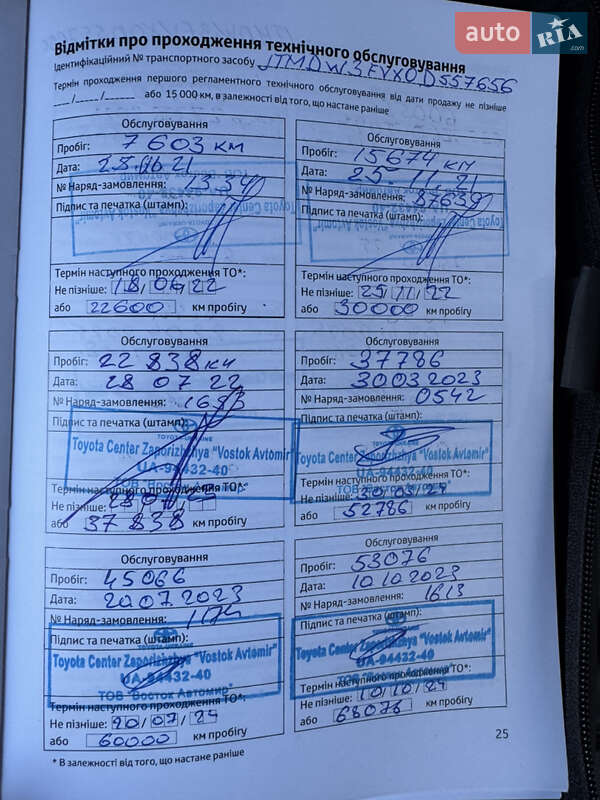 auto RIA.com
Відмітки про проходження технічного обслуговування
Ідентифікаційний № транспортного засобу JTMDW3FVX0D557656
Термін проходження першого регламентного технічного обслуговування від дати продажу не пізніше
___/___/___ або 15 000 км, в залежності від того, що настане раніше
Обслуговування
Пробіг: 7603 км
Дата:
№ Наряд-замовлення:
Підпис та печатка (штамп):
Термін наступного проходження ТО*:
Не пізніше: 18/06/22
або 22600 км пробігу
Обслуговування
Пробіг: 15674 км
Дата: 25.11.21
№ Наряд-замовлення: 37639
Підпис та печатка (штамп):
Термін наступного проходження ТО*:
Не пізніше: 25/11/22
або 30000 км пробігу
Обслуговування
Пробіг: 22 838 км
Дата: 28 07 22
№ Наряд-замовлення: 1693
Підпис та печатка (штамп):
TOYOTA UKRAINE
Toyota Center Zaporizhzhya "Vostok Avtomir"
UA-94432-40
ТОВ "Восток Автомир"
Термін наступного проходження ТО*:
Не пізніше:
або 37 838 км пробігу
Обслуговування
Пробіг: 37786
Дата: 30.03.2023
№ Наряд-замовлення: 0542
Підпис та печатка (штамп):
Toyota Center Zaporizhzhya "Vostok Avtomir"
UA-94432-40
ТОВ "Восток Автомир"
Термін наступного проходження ТО*:
Не пізніше: 30/03/24
або 52786 км пробігу
Обслуговування
Пробіг: 45066
Дата: 20.07.2023
№ Наряд-замовлення: 1174
Підпис та печатка (штамп):
Toyota Center Zaporizhzhya "Vostok Avtomir"
UA-94432-40
ТОВ "Восток Автомир"
Термін наступного проходження ТО*:
Не пізніше: 20/07/24
або 60000 км пробігу
Обслуговування
Пробіг: 53076
Дата: 10.10.2023
№ Наряд-замовлення: 1613
Підпис та печатка (штамп):
Toyota Center Zaporizhzhya "Vostok Avtomir"
UA-94432-40
Термін наступного проходження ТО*:
Не пізніше: 10/10/24
або 68076 км пробігу
* В залежності від того, що настане раніше
25